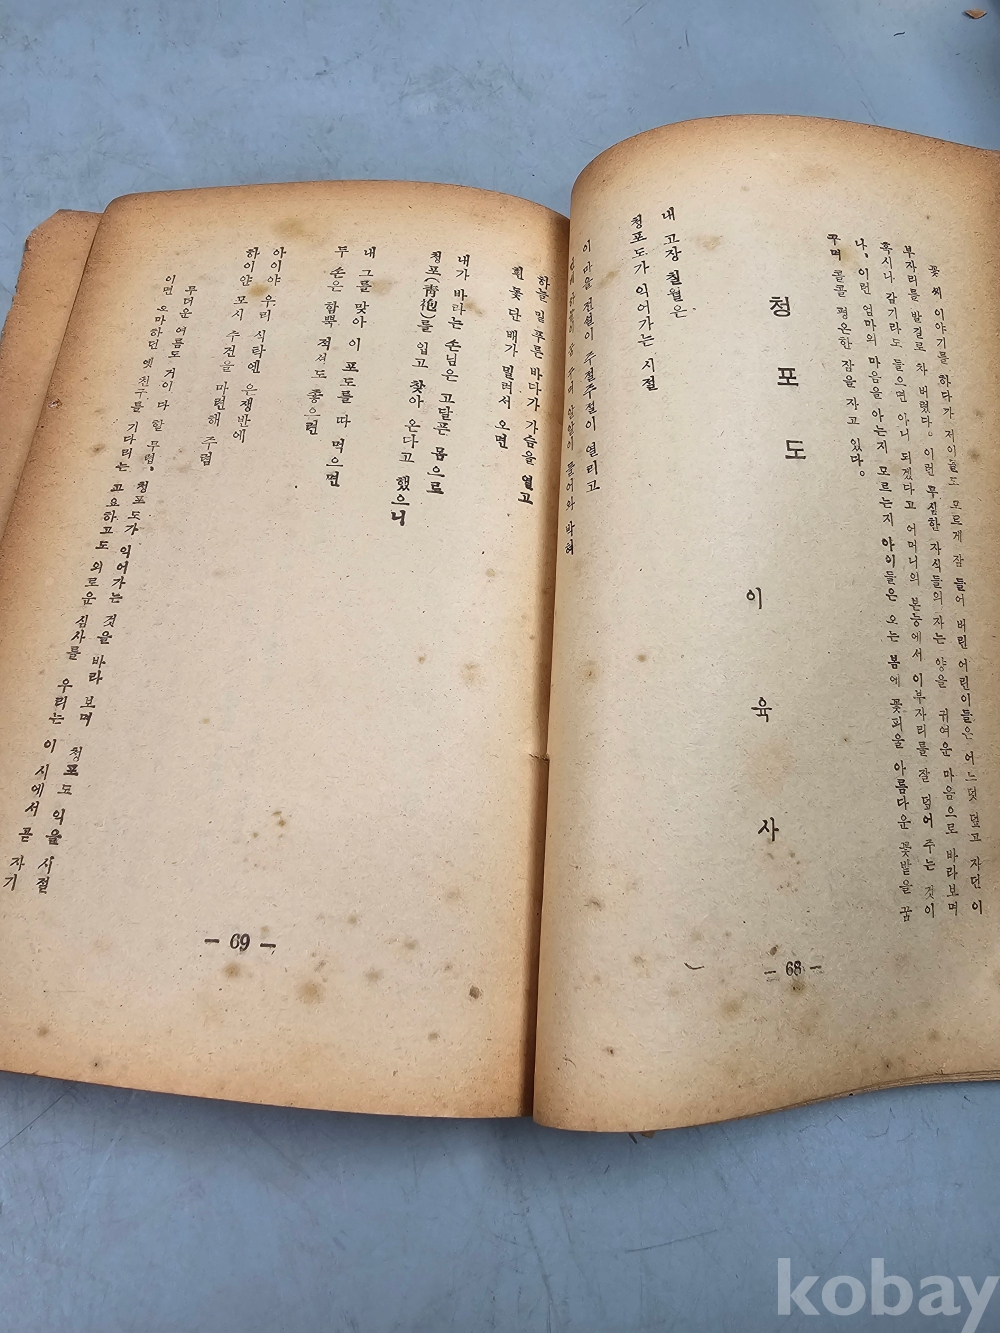 꽃씨 이야기를 하다가 저이들도 모르게 잠 들어 버린 어린이들은 어느덧 덮고 자던 이
부자리를 발길로 차 버렸다。 이런 무심한 자식들의 자는 양을 귀여운 마음으로 바라보며
혹시나 감기라도 들으면 아니 되겠다고 어머니의 본능에서 이부자리를 잘 덮어 주는 것이
나、 이런 엄마의 마음을 아는지 모르는지 아이들은 오는 봄에 꽃피울 아름다운 꽃밭을 꿈
꾸며 콜콜 평온한 잠을 자고 있다。
청포도
이육사
내 고장 칠월은
청포도가 익어가는 시절
이 마을 전설이 주절주절이 열리고
알알이 들어와 박혀
— 68 —
하늘 밑 푸른 바다가 가슴을 열고
흰 돛 단 배가 밀려서 오면
내가 바라는 손님은 고달픈 몸으로
청포(靑袍)를 입고 찾아 온다고 했으니
내 그를 맞아 이 포도를 따 먹으면
두 손은 함뿍 적셔도 좋으련
아이야 우리 식탁엔 은쟁반에
하이얀 모시 수건을 마련해 주렴
무더운 여름도 거이 다 할 무렵、 청포도가 익어가는 것을 바라 보며 청포도 익을 시절
이면 오마하던 옛 친구를 기다리는 고요하고도 외로운 심사를 우리는 이 시에서 곧 자기
— 69 —
kobay